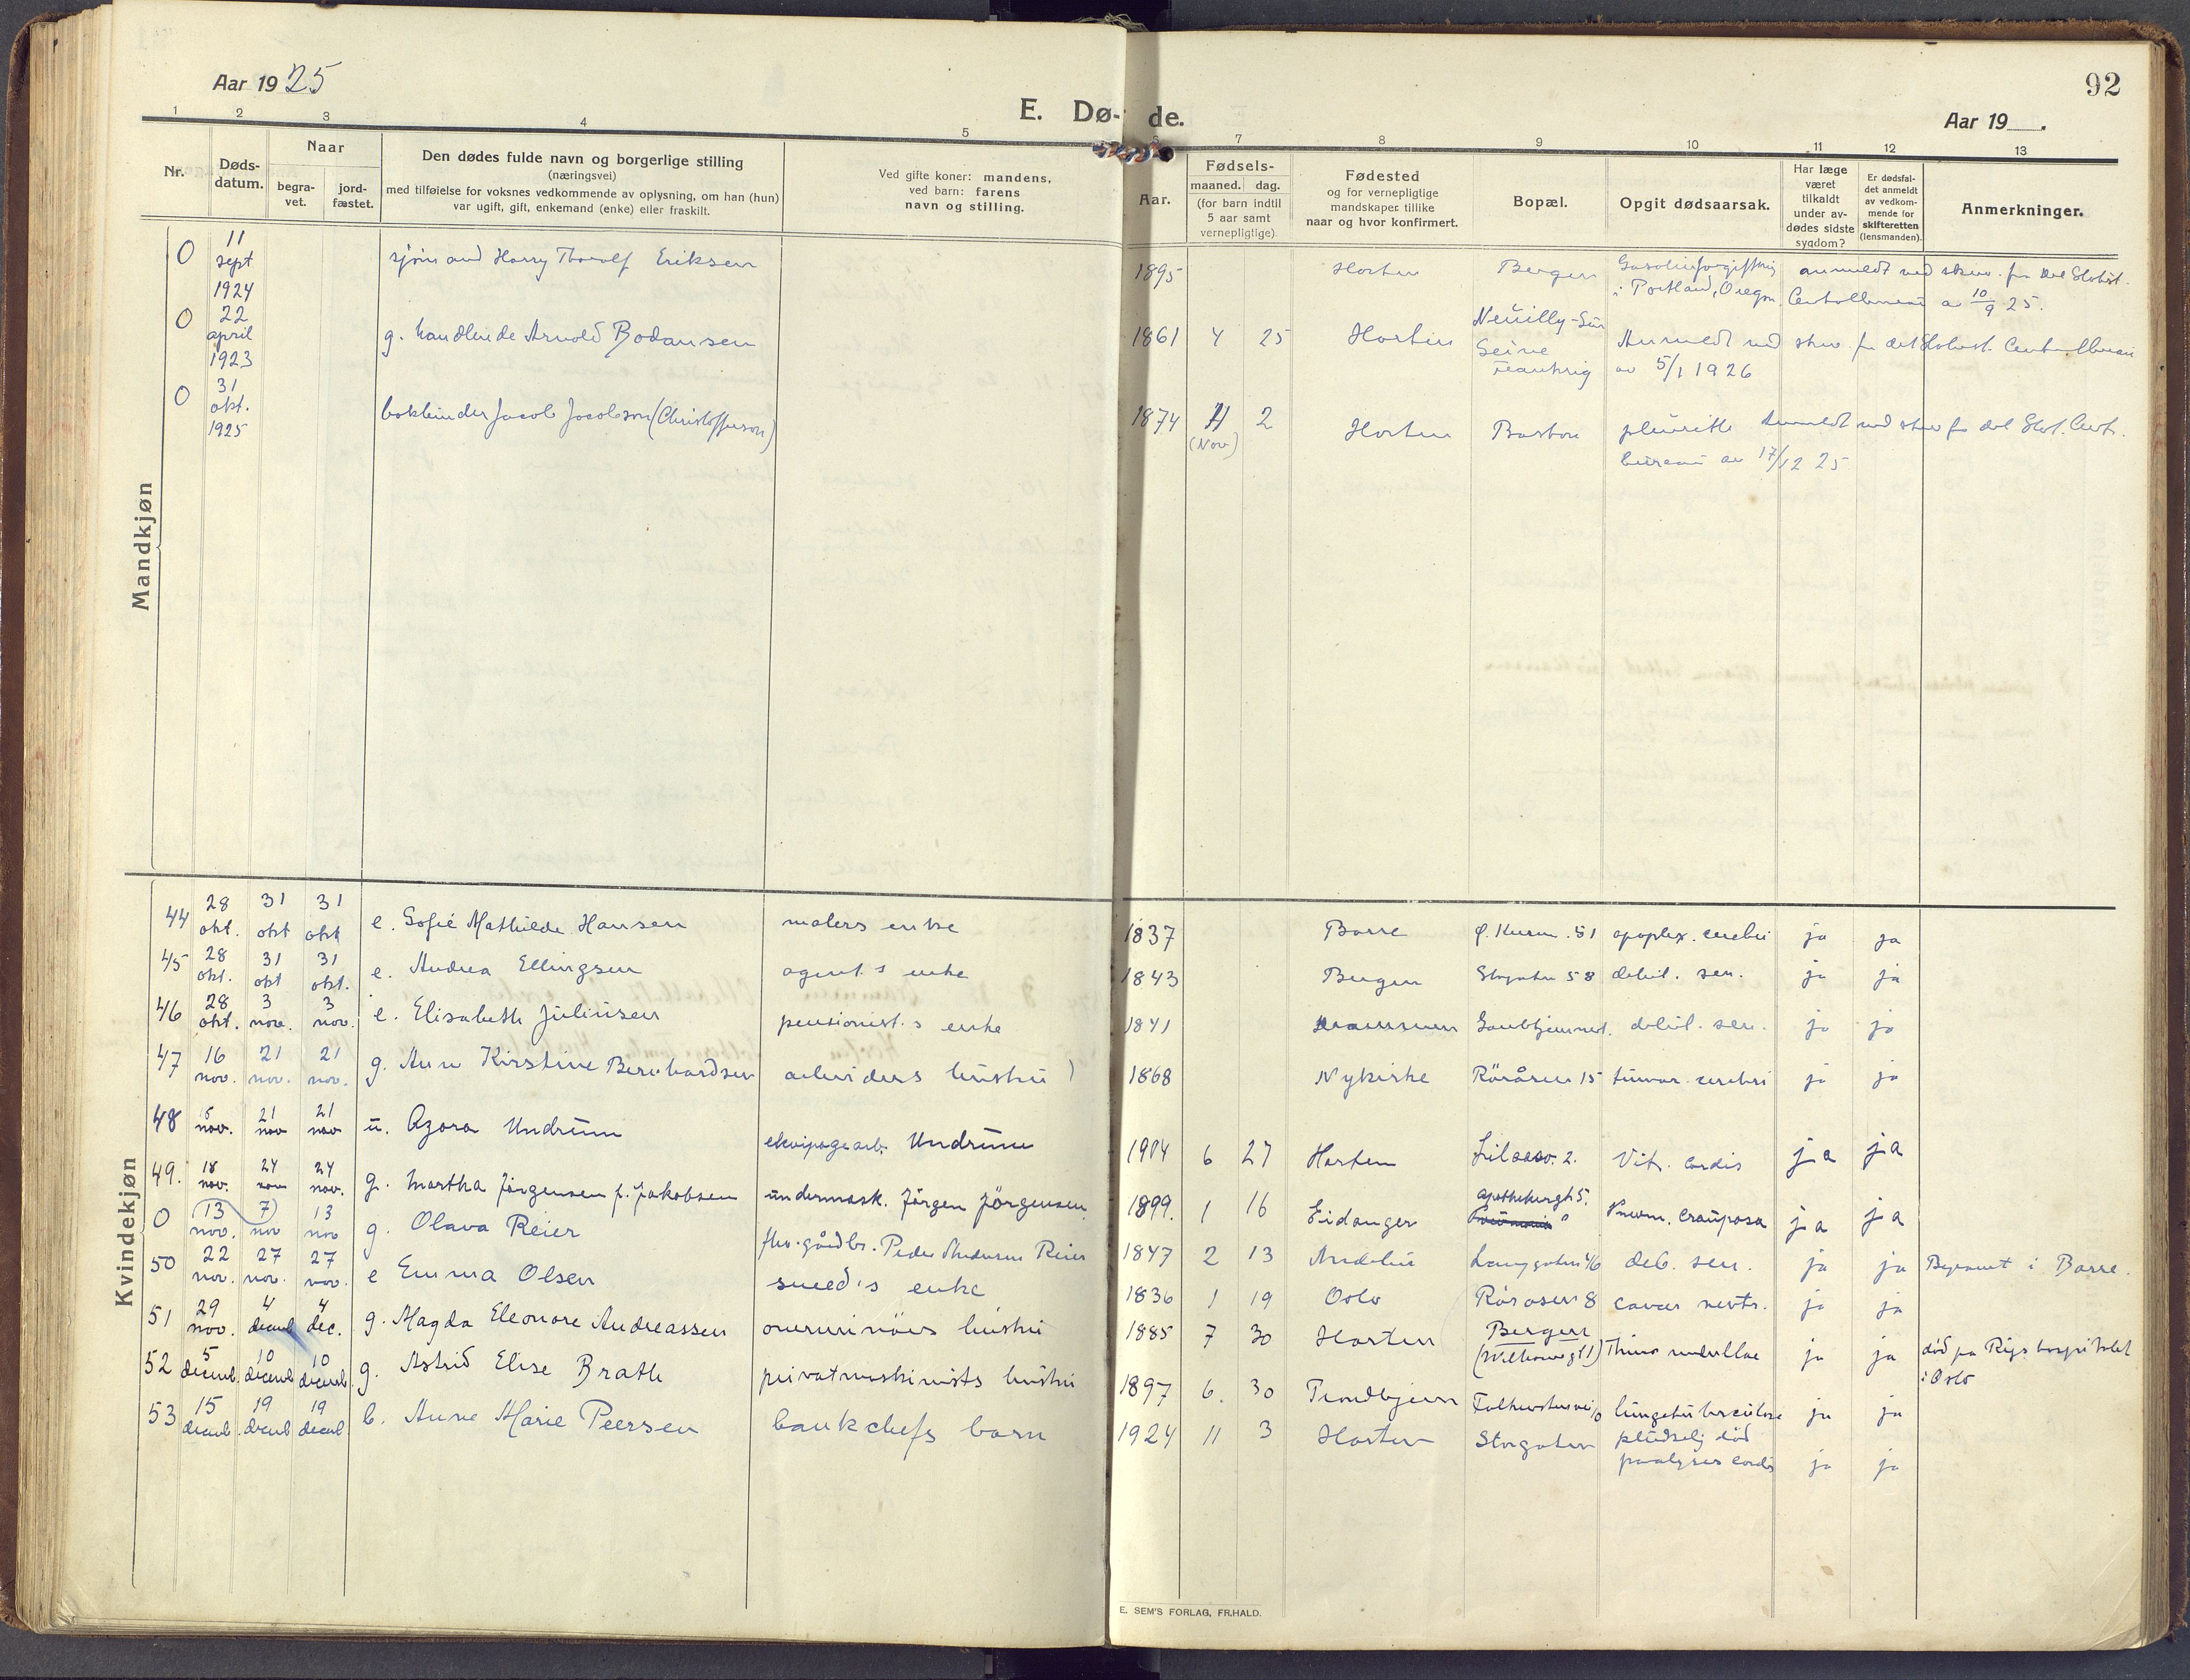 Aar 1925
E. Dø- de.
Aar 19 .
92
1 2 3 4 5 6 7 8 9 10 11 12 13
Nr.
Døds-
datum.
Naar
begra-
vet.
jord-
fæstet.
Den dødes fulde navn og borgerlige stilling
(næringsvei)
med tilføielse for voksnes vedkommende av oplysning, om han (hun)
var ugift, gift, enkemand (enke) eller fraskilt.
Ved gifte koner: mandens,
ved barn: farens
navn og stilling.
Aar.
Fødsels-
maaned. dag.
(for barn indtil
5 aar samt
vernepligtige).
Fødested
og for vernepligtige
mandskaper tillike
naar og hvor konfirmert.
Bopæl.
Opgit dødsaarsak.
Har læge
været
tilkaldt
under av-
dødes sidste
sygdom?
Er dødsfal-
det anmeldt
av vedkom-
mende for
skifteretten
(lensmanden).
Anmerkninger.
Mandkjøn
0 11 sept 1924 Harry Thorolf Eriksen 1895 Horten Bergen i Portland, Oregon 10/9 25.
0 22 april 1923 g. handlende Arnold Bodansen 1861 4 25 Horten Neuilly-Sur Seine Anmeldt av 5/1 1926
0 31 okt. 1925 bokbinder Jacob Jacobson (Christofferson) 1874 11 (Nov) 2 Horten Boston pleuritt Anmeldt bureau av 17/12 25
Kvindekjøn
44 28 okt. 31 okt 31 okt e. Sofie Mathilde Hansen malers enke 1837 Borre 51 apoplex. cerebri ja ja
45 28 okt. 31 okt 31 okt. e. Andrea Ellingsen agent's enke 1843 Bergen Storgaten 58 debil. sen. ja ja
46 28 okt. 3 nov. 3 nov. e. Elisabeth Juliussen pensionist's enke 1841 debil. sen. ja ja
47 16 nov. 21 nov. 21 nov. g. Anne Kirstine Bernhardsen arbeiders hustru 1868 Nykirke Röråsen 15 tumor cerebri ja ja
48 15 nov. 21 nov 21 nov u. Agora Undrum ekvipagearb. Undrum 1904 6 27 Horten 2. Vit. cordis ja ja
49. 18 nov. 24 nov 24 nov. g. Martha Jørgensen f. Jakobsen undermask. Jörgen Jörgensen 1899. 1 16 Eidanger apothekergt 5. Pneum. crouposa ja ja
0 13 nov. 7 nov 13 nov g. Olava Reier fhv. gårdbr. Peder Andersen Reier 1847 2 13 Andebu Langgaten 46 deb. sen. ja ja Begravet i Borre.
50 22 nov. 27 nov. 27 nov. e Emma Olsen smed's enke 1836 1 19 Oslo Rörosen 8 cancer ventr. ja ja
51 29 nov. 4 decemb 4 dec. g. Magda Eleonore Andreassen hustru 1885 7 30 Horten Bergen ja ja död på Rigshospitalet i Oslo
52 5 decemb. 10 decemb 10 decemb. g. Astrid Elise Brath privatmaskinists hustru 1897 6. 30 Trondhjem lungetuberculose ja ja
53 15 decemb. 19 decemb 19 decemb b. Anne Marie Peersen bankchefs barn 1924 11 3 Horten Storgaten pludselig död paralysis cordis ja ja
E. SEM'S FORLAG, FR.HALD.